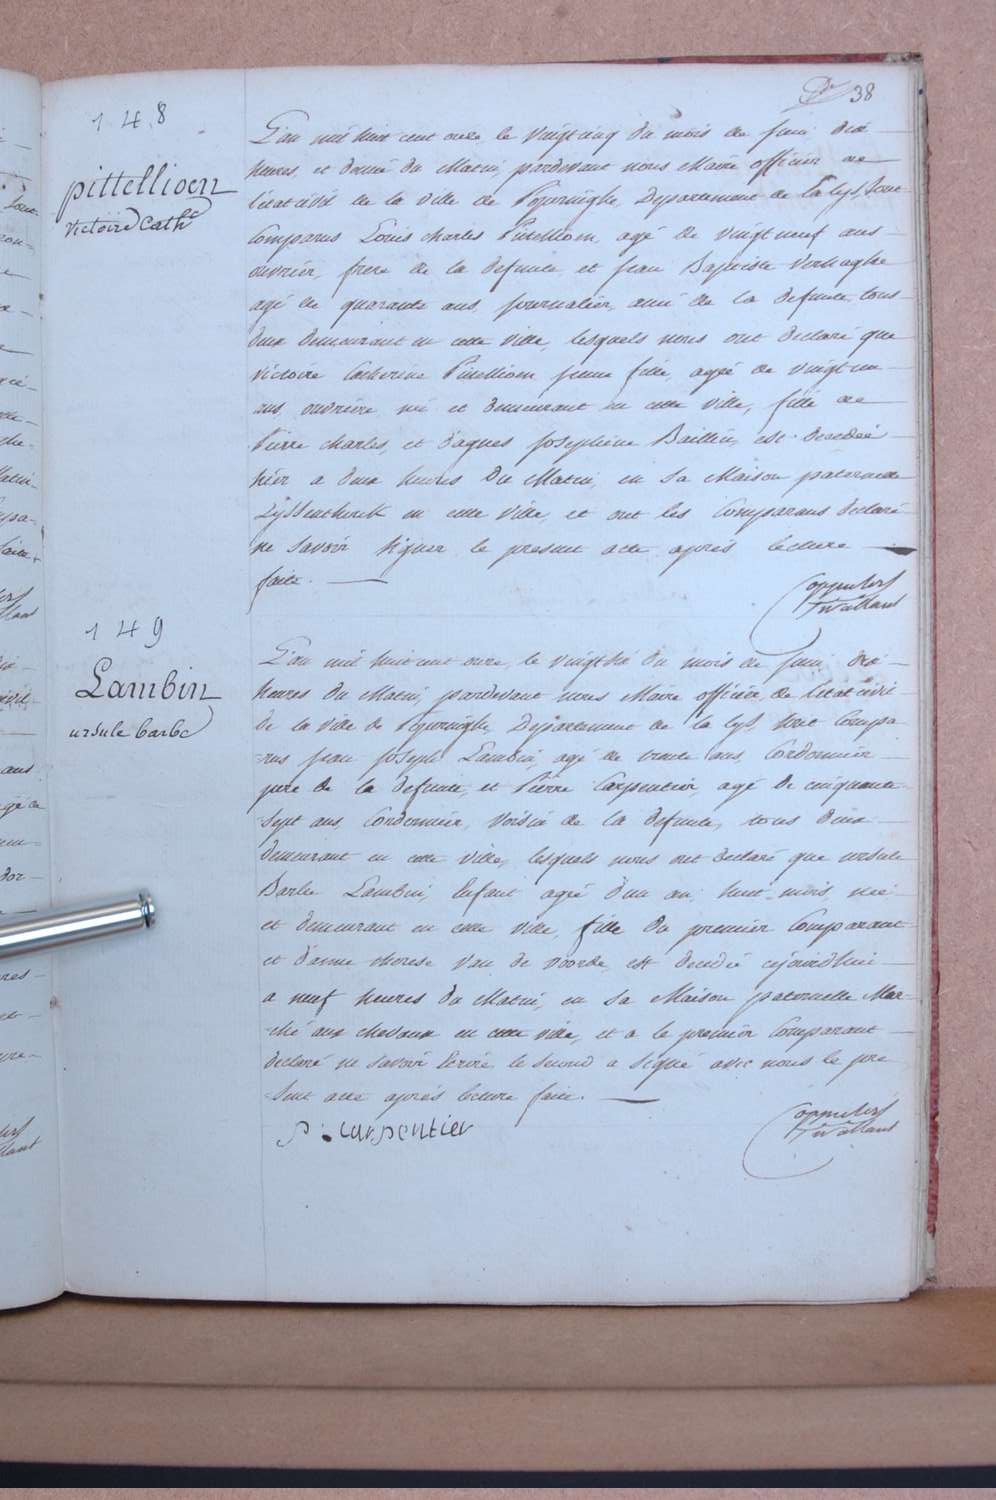 38
148
pittellioen
victoire Cath.e
L'an mil huit cent onze le vingt cinq du mois de juin dix
heures et demie du Matin, pardevant nous Maire officier de
l'état civil de la ville de Poperinghe, Departement de la Lys, sont
Comparus Louis Charles Pittellioen, agé de vingt neuf ans
ouvrier, frere de la defunte, et jean Baptiste Verhaghe
agé de quarante ans, journalier, ami de la defunte, tous
deux demeurant en cette ville, lesquels nous ont declaré que
victoire Catherine Pittellioen jeune fille, agée de vingt un
ans, ouvriere, né et demeurant en cette ville, fille de
Pierre Charles, et d'agnes josephine Baillieu, est decedée
hier a deux heures du Matin, en sa Maison paternelle
en cette ville, et ont les Comparans declaré
ne savoir signer le present acte après lecture
faite.
149
Lambin
ursule barbe
L'an mil huit cent onze, le vingt six du mois de juin dix
heures du Matin, pardevant nous Maire officier de l'état civil
de la ville de Poperinghe, Departement de la Lys, sont Compa-
-rus jean joseph Lambin, agé de trente ans, Cordonnier
pere de la defunte, et Pierre Carpentier, agé de cinquante
sept ans, Cordonnier, voisin de la defunte, tous deux
demeurant en cette ville, lesquels nous ont declaré que ursule
Barbe Lambin, Enfant agée d'un an, huit mois, née
et demeurant en cette ville, fille du premier Comparant
et d'anne therese van de voorde, est decedée cejourd'hui
a neuf heures du Matin, en sa Maison paternelle Mar-
-ché aux chevaux en cette ville, et a le premier Comparant
declaré ne savoir Ecrire, le second a signé avec nous le pre
sent acte après lecture faite.
p: carpentier